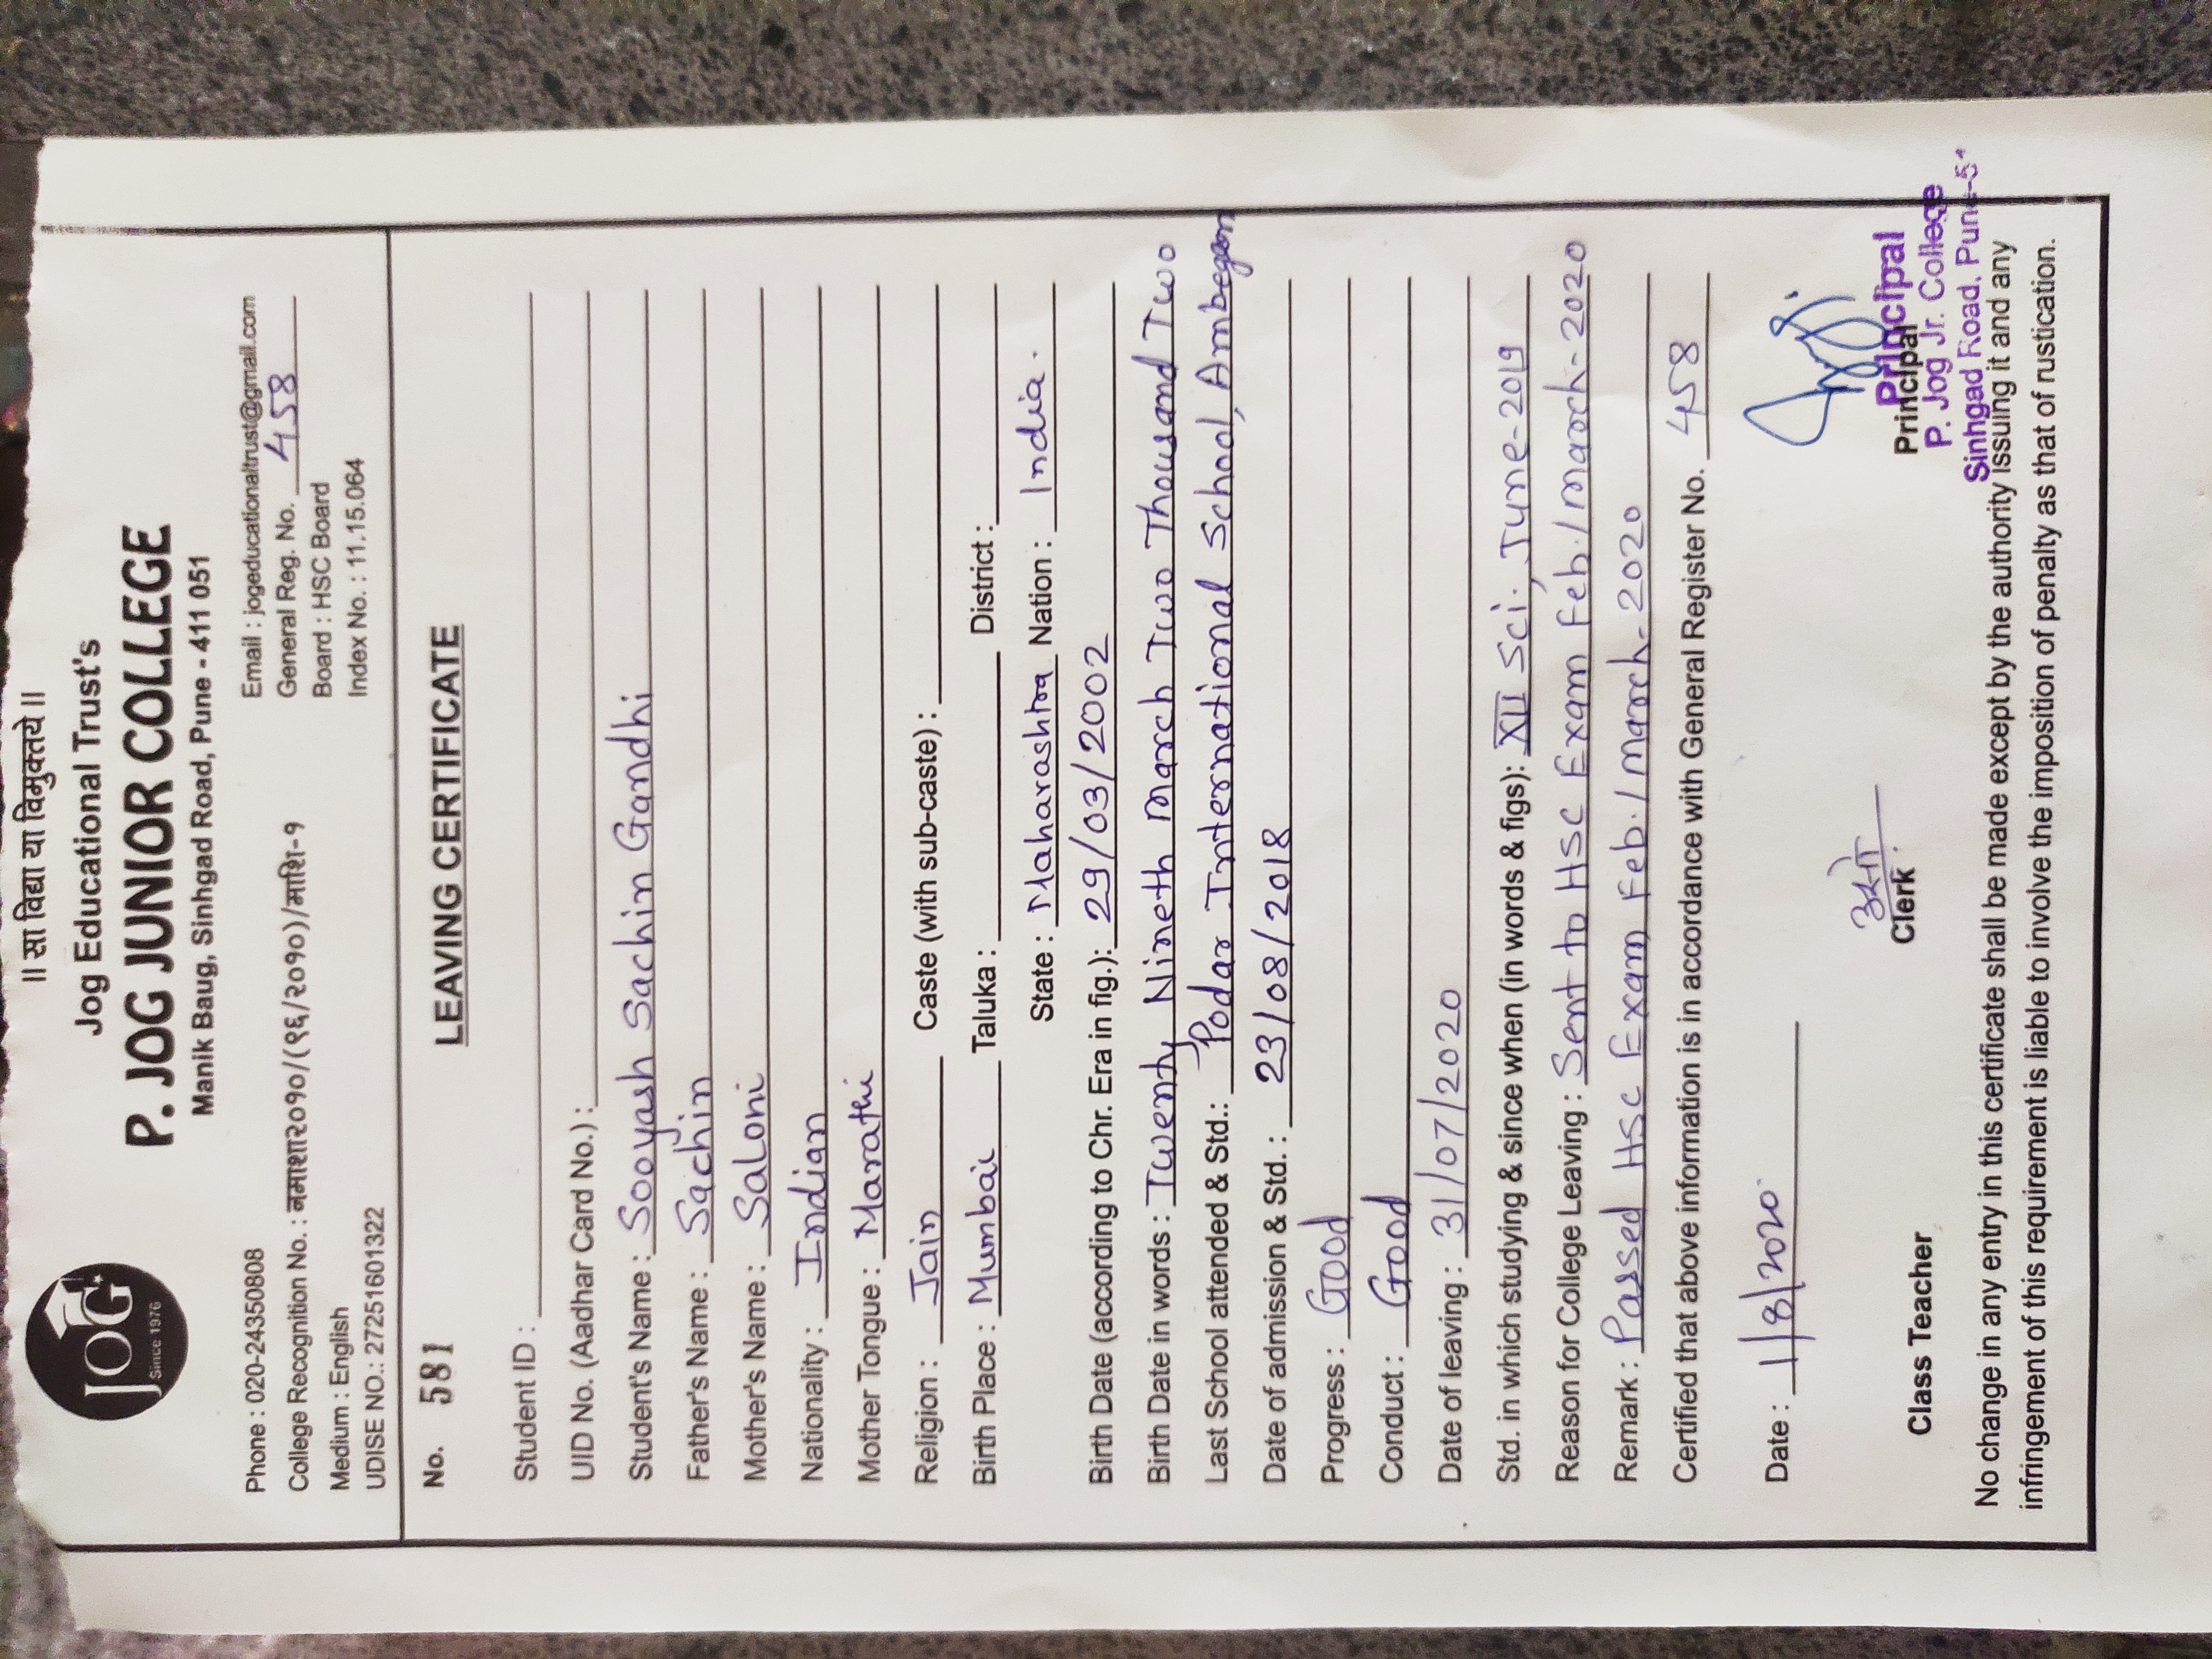 ॥ सा विद्या या विमुक्तये ॥
Jog Educational Trust's
P. JOG JUNIOR COLLEGE
Manik Baug, Sinhgad Road, Pune - 411 051
JOG
Since 1976
Phone : 020-24350808
Email : jogeducationaltrust@gmail.com
College Recognition No. : नमाशा२०१०/(१६/२०१०)/माशि-१
General Reg. No. 458
Medium : English
Board : HSC Board
UDISE NO.: 27251601322
Index No. : 11.15.064
No. 581
LEAVING CERTIFICATE
Student ID :
UID No. (Aadhar Card No.) :
Student's Name : Sooyash Sachin Gandhi
Father's Name : Sachin
Mother's Name : Saloni
Nationality : Indian
Mother Tongue : Marathi
Religion : Jain Caste (with sub-caste) :
Birth Place : Mumbai Taluka : District :
State : Maharashtra Nation : India.
Birth Date (according to Chr. Era in fig.): 29/03/2002
Birth Date in words : Twenty Nineth March Two Thousand Two
Last School attended & Std.: Podar International School, Ambegaon
Date of admission & Std. : 23/08/2018
Progress : Good
Conduct : Good
Date of leaving : 31/07/2020
Std. in which studying & since when (in words & figs): XII Sci. June-2019
Reason for College Leaving : Sent to HSC Exam Feb./March-2020
Remark : Passed HSC Exam, Feb./March-2020
Certified that above information is in accordance with General Register No. 458
Date : 1/8/2020
Class Teacher
Clerk
Principal
Principal
P. Jog Jr. College
Sinhgad Road, Pune-51
No change in any entry in this certificate shall be made except by the authority issuing it and any
infringement of this requirement is liable to involve the imposition of penalty as that of rustication.